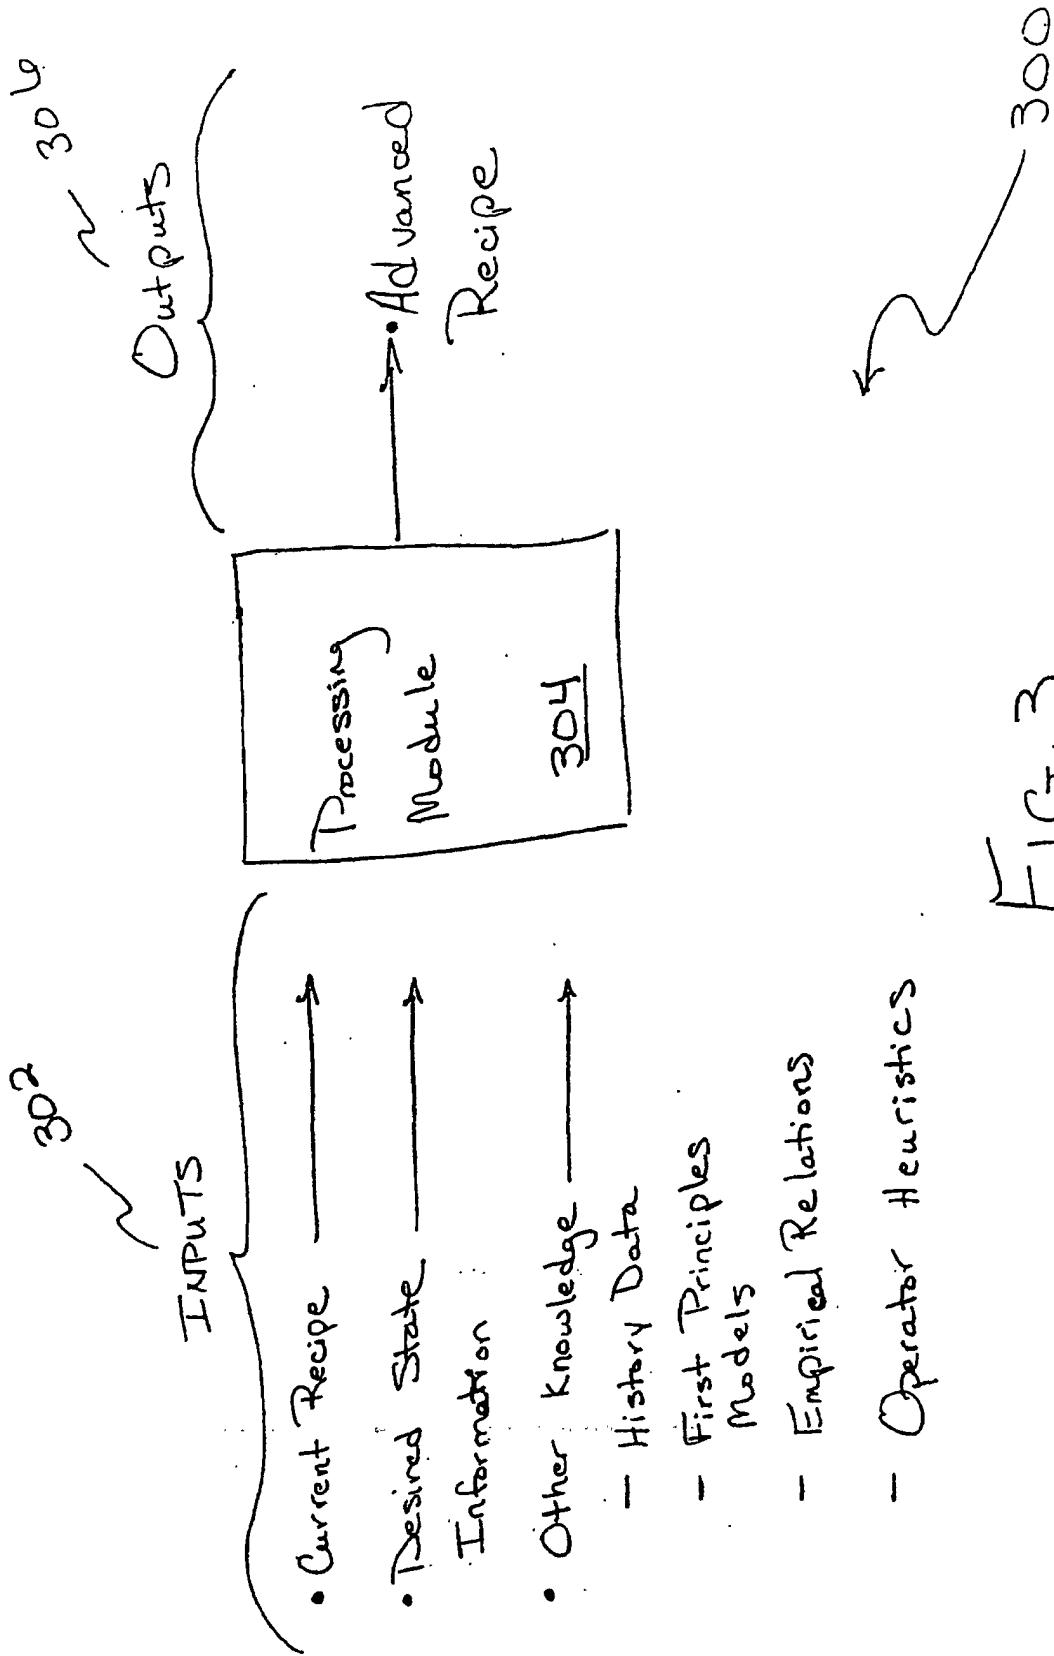 302
INPUTS
• Current Recipe
• Desired State
Information
• Other Knowledge
– History Data
– First Principles
Models
– Empirical Relations
– Operator Heuristics
Processing
Module
304
306
Outputs
• Advanced
Recipe
300
FIG. 3